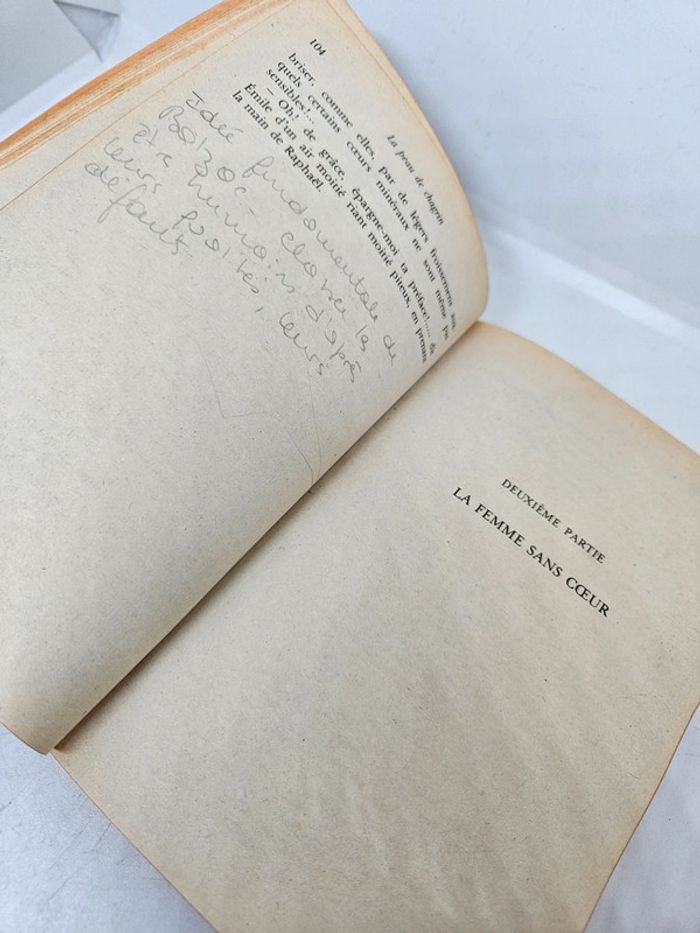 104
La peau de chagrin
briser, comme elles, par de légers froissements aux
quels certains cœurs minéraux ne sont même pas
sensibles!...
– Oh! de grâce, épargne-moi ta préface!....
Émile d'un air moitié riant moitié piteux, en prenant
la main de Raphaël.
Idée fondamentale de
Balzac - classer ls
être humains d'après
leurs qualités, leurs
défauts.
DEUXIÈME PARTIE
LA FEMME SANS CŒUR